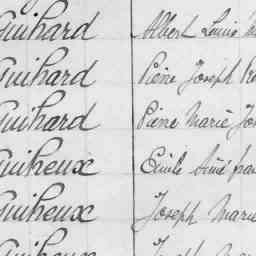 Guihard Albert Louis
Guihard Pierre Joseph
Guihard Pierre Marie
Guiheux Emile Aimé
Guiheux Joseph Marie